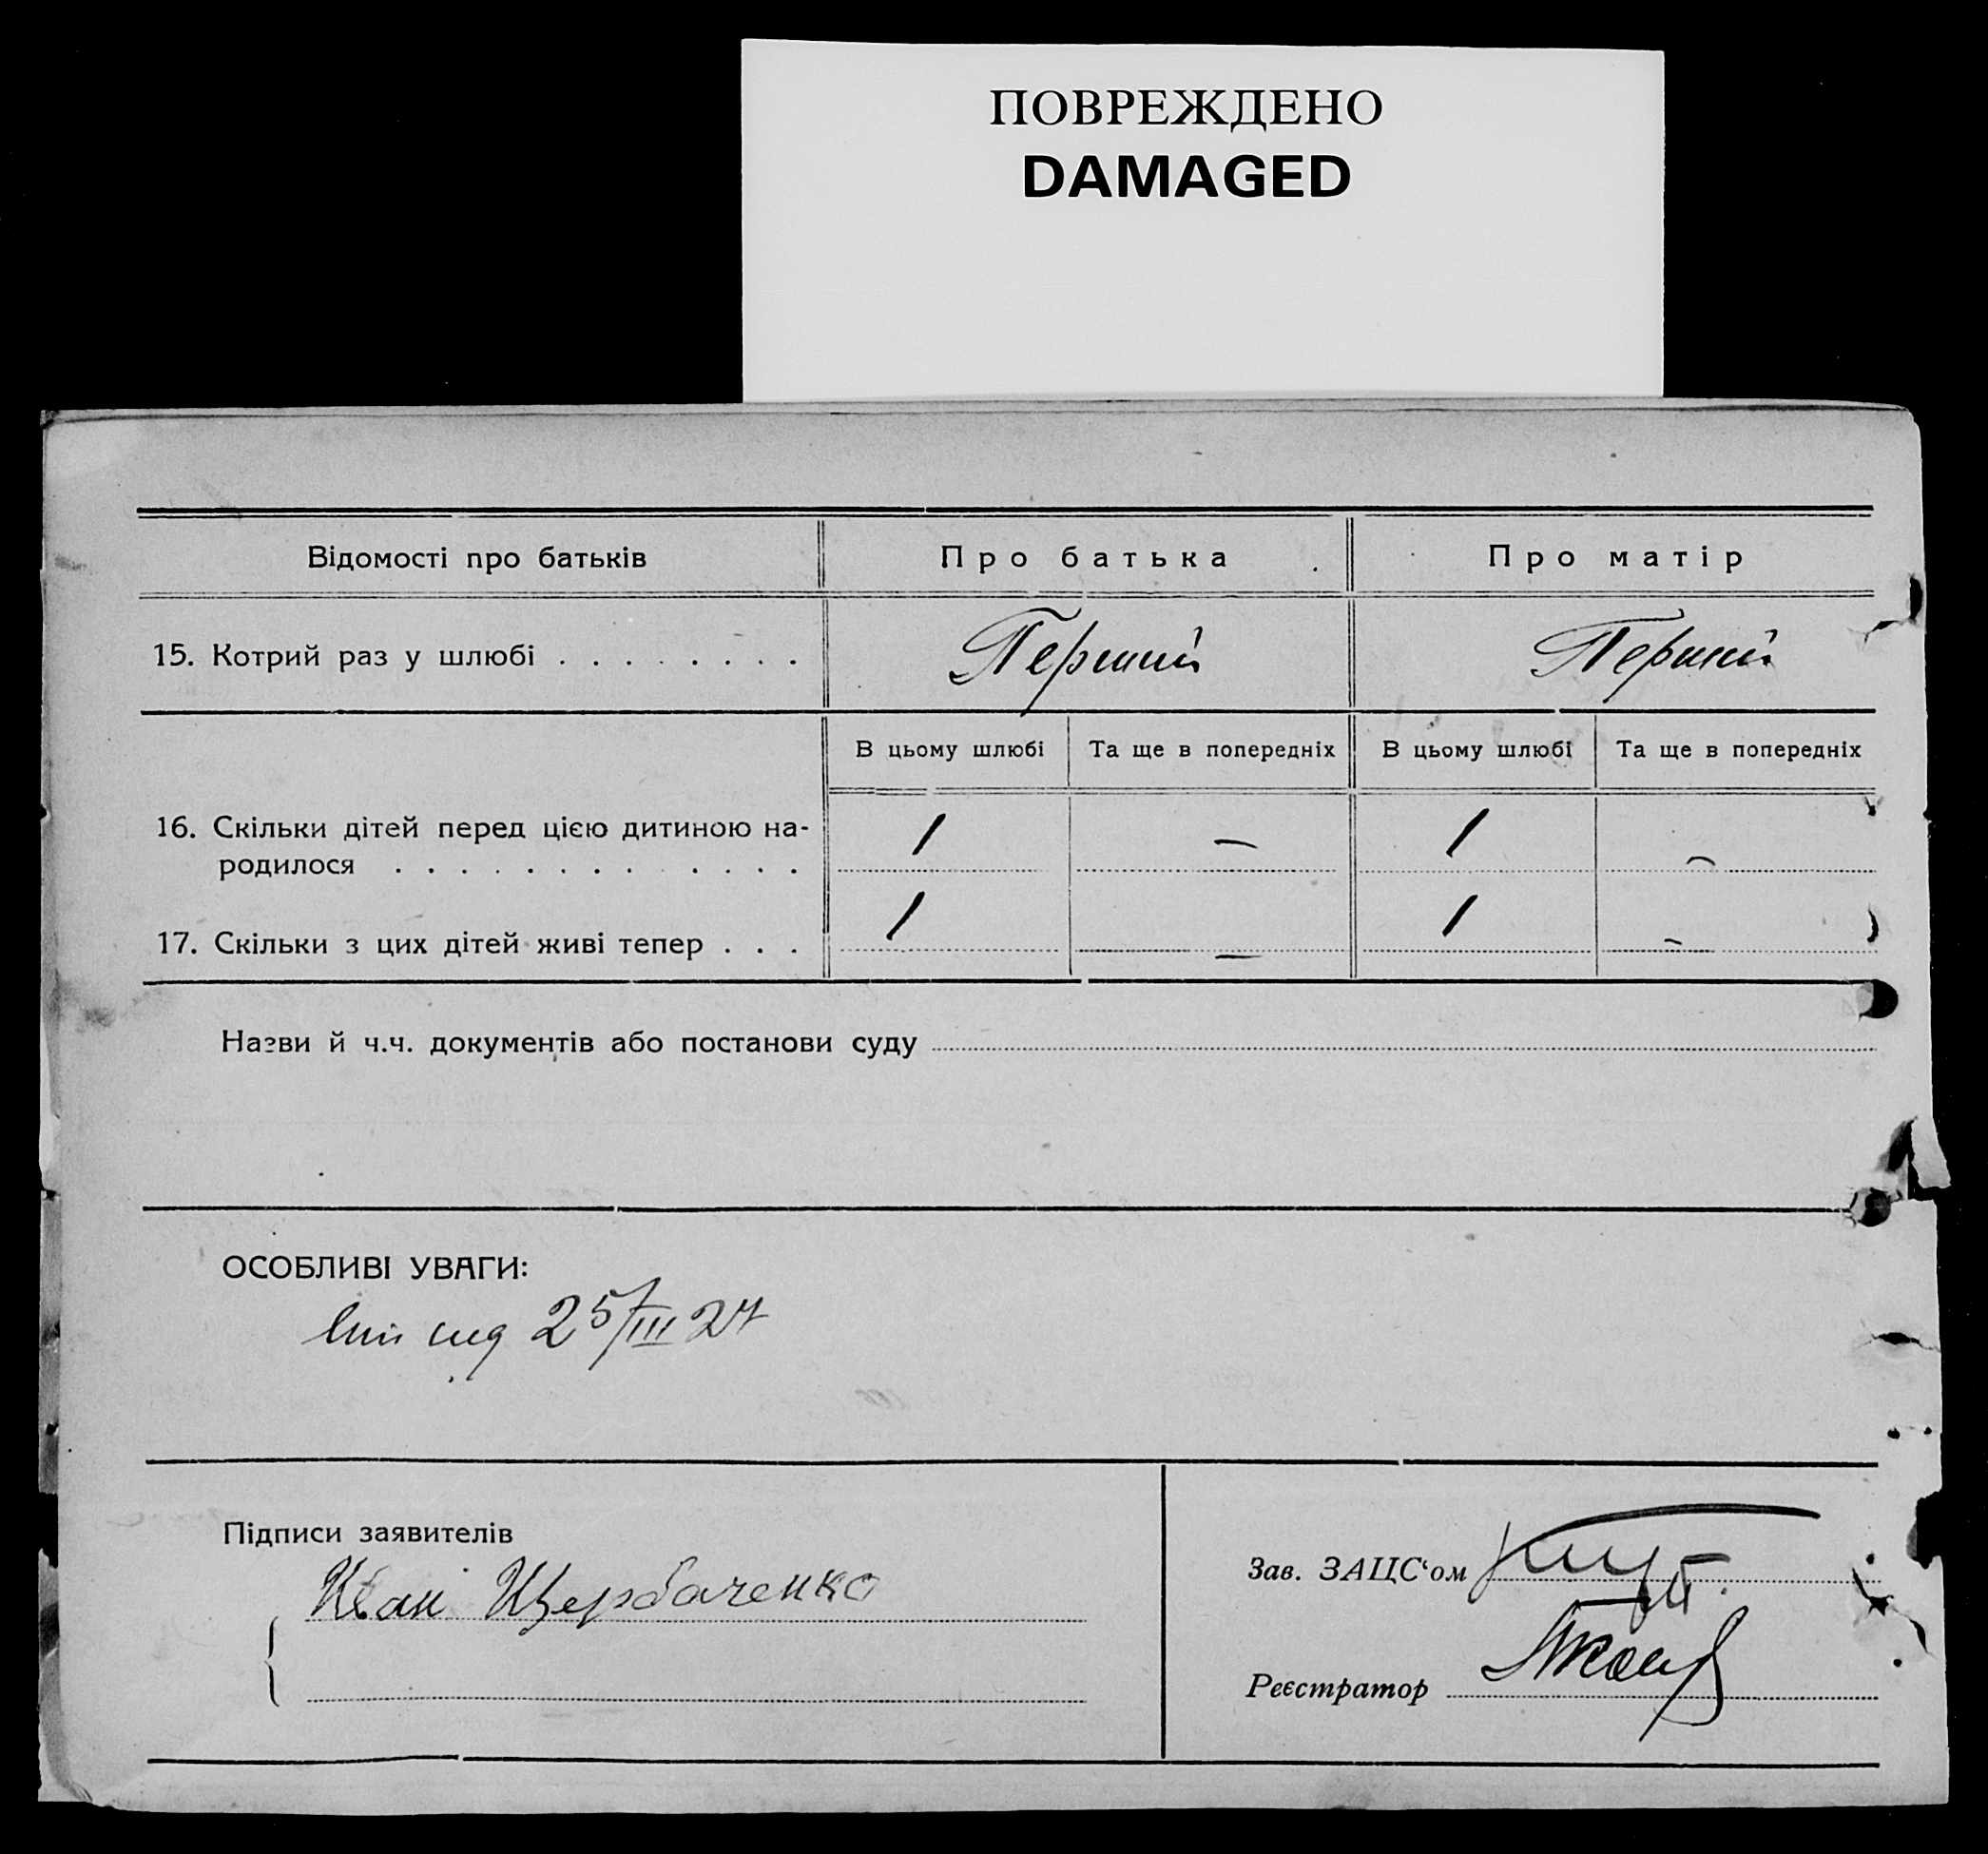 ПОВРЕЖДЕНО
DAMAGED
Відомості про батьків Про батька Про матір
15. Котрий раз у шлюбі . . . . . . . . Перший Перший
В цьому шлюбі Та ще в попередніх В цьому шлюбі Та ще в попередніх
16. Скільки дітей перед цією дитиною на-
родилося . . . . . . . . . . . . . 1 — 1 —
17. Скільки з цих дітей живі тепер . . . 1 — 1 —
Назви й ч.ч. документів або постанови суду
ОСОБЛИВІ УВАГИ:
25/III 27
Підписи заявителів
Иван Щербаченко
Зав. ЗАЦС‘ом
Реєстратор